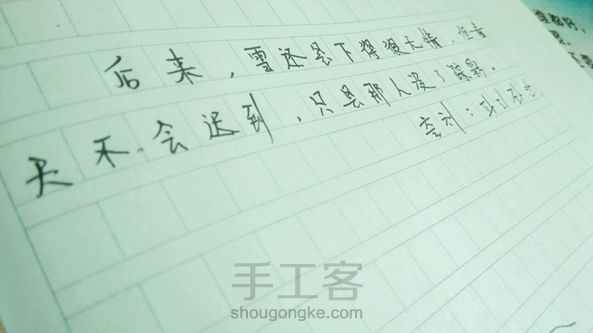 后来，雪还是下得很大情，但春
天不会迟到，只是那人没了踪影。
手工客
shougongke.com